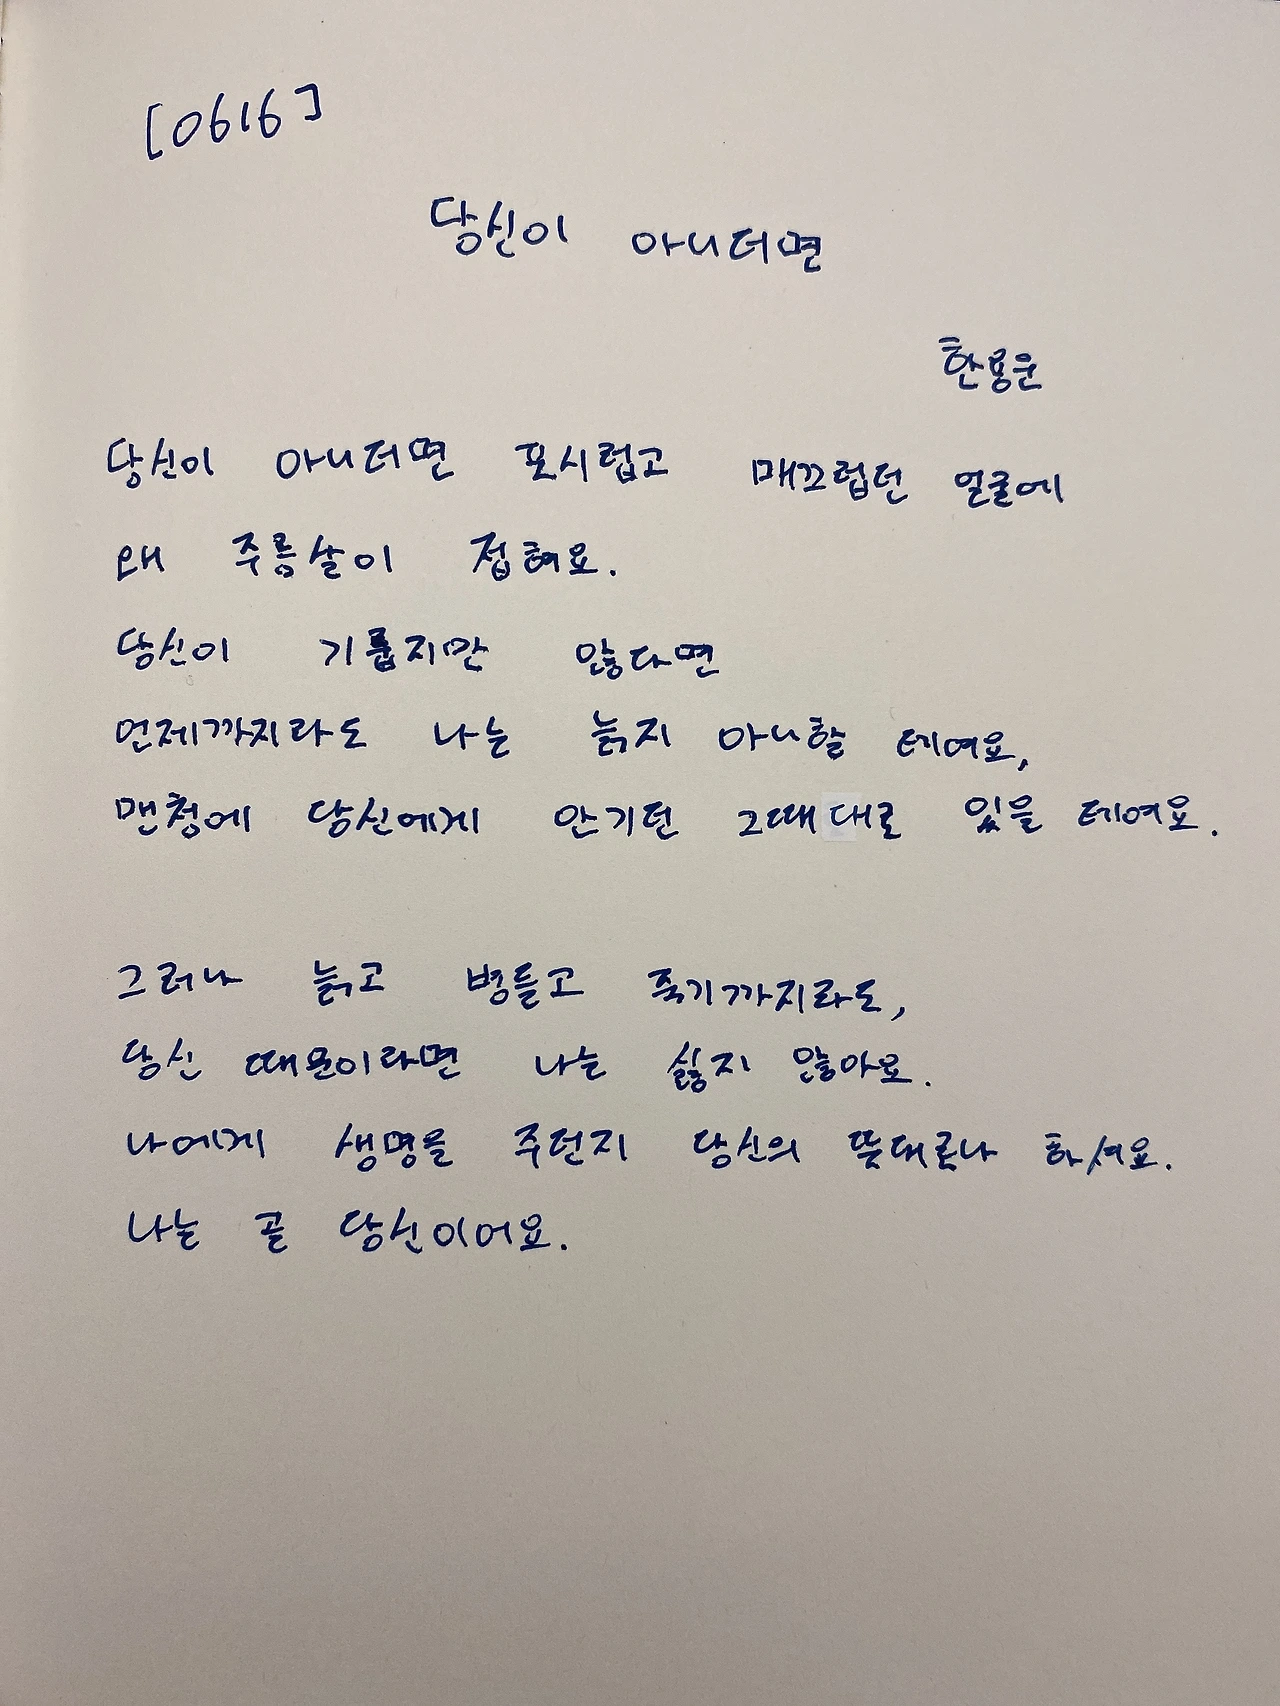 [0616]
당신이 아니더면
한용운
당신이 아니더면 포시럽고 매끄럽던 얼굴에
왜 주름살이 접혀요.
당신이 기룹지만 않다면
언제까지라도 나는 늙지 아니할 테여요,
맨첨에 당신에게 안기던 그때대로 있을 테여요.
그러나 늙고 병들고 죽기까지라도,
당신 때문이라면 나는 싫지 않아요.
나에게 생명을 주던지 당신의 뜻대로나 하셔요.
나는 곧 당신이어요.